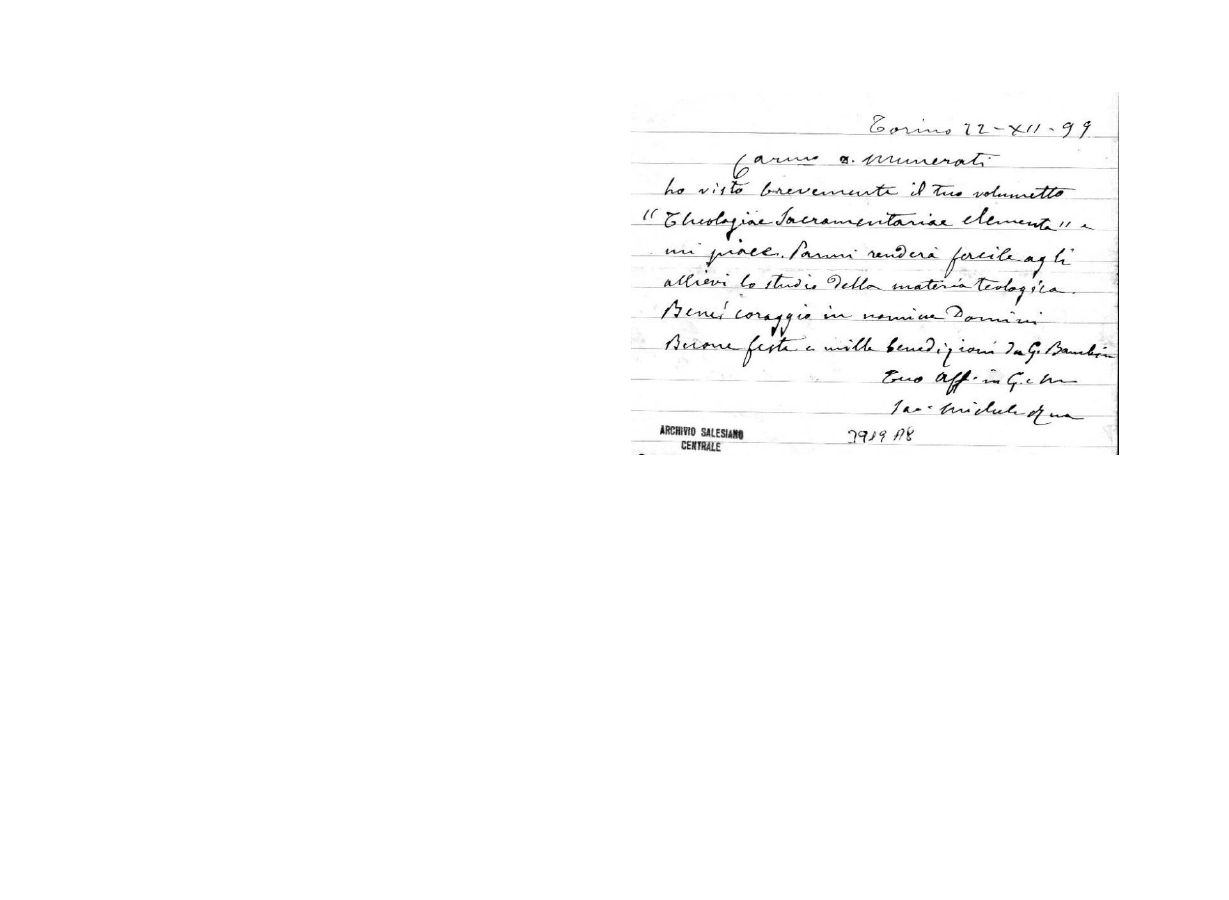 Torino 22-XII-99
Carmo D. Munerati
ho visto brevemente il tuo volumetto
"Theologiae Sacramentariae elementa" e
mi piace. Parmi renderà facile agli
allievi lo studio della materia teologica.
Bene! coraggio in nomine Domini
Buone feste e mille benedizioni da G. Bambin
Tuo aff. in G. e M
Sac. Michele Rua
ARCHIVIO SALESIANO
CENTRALE